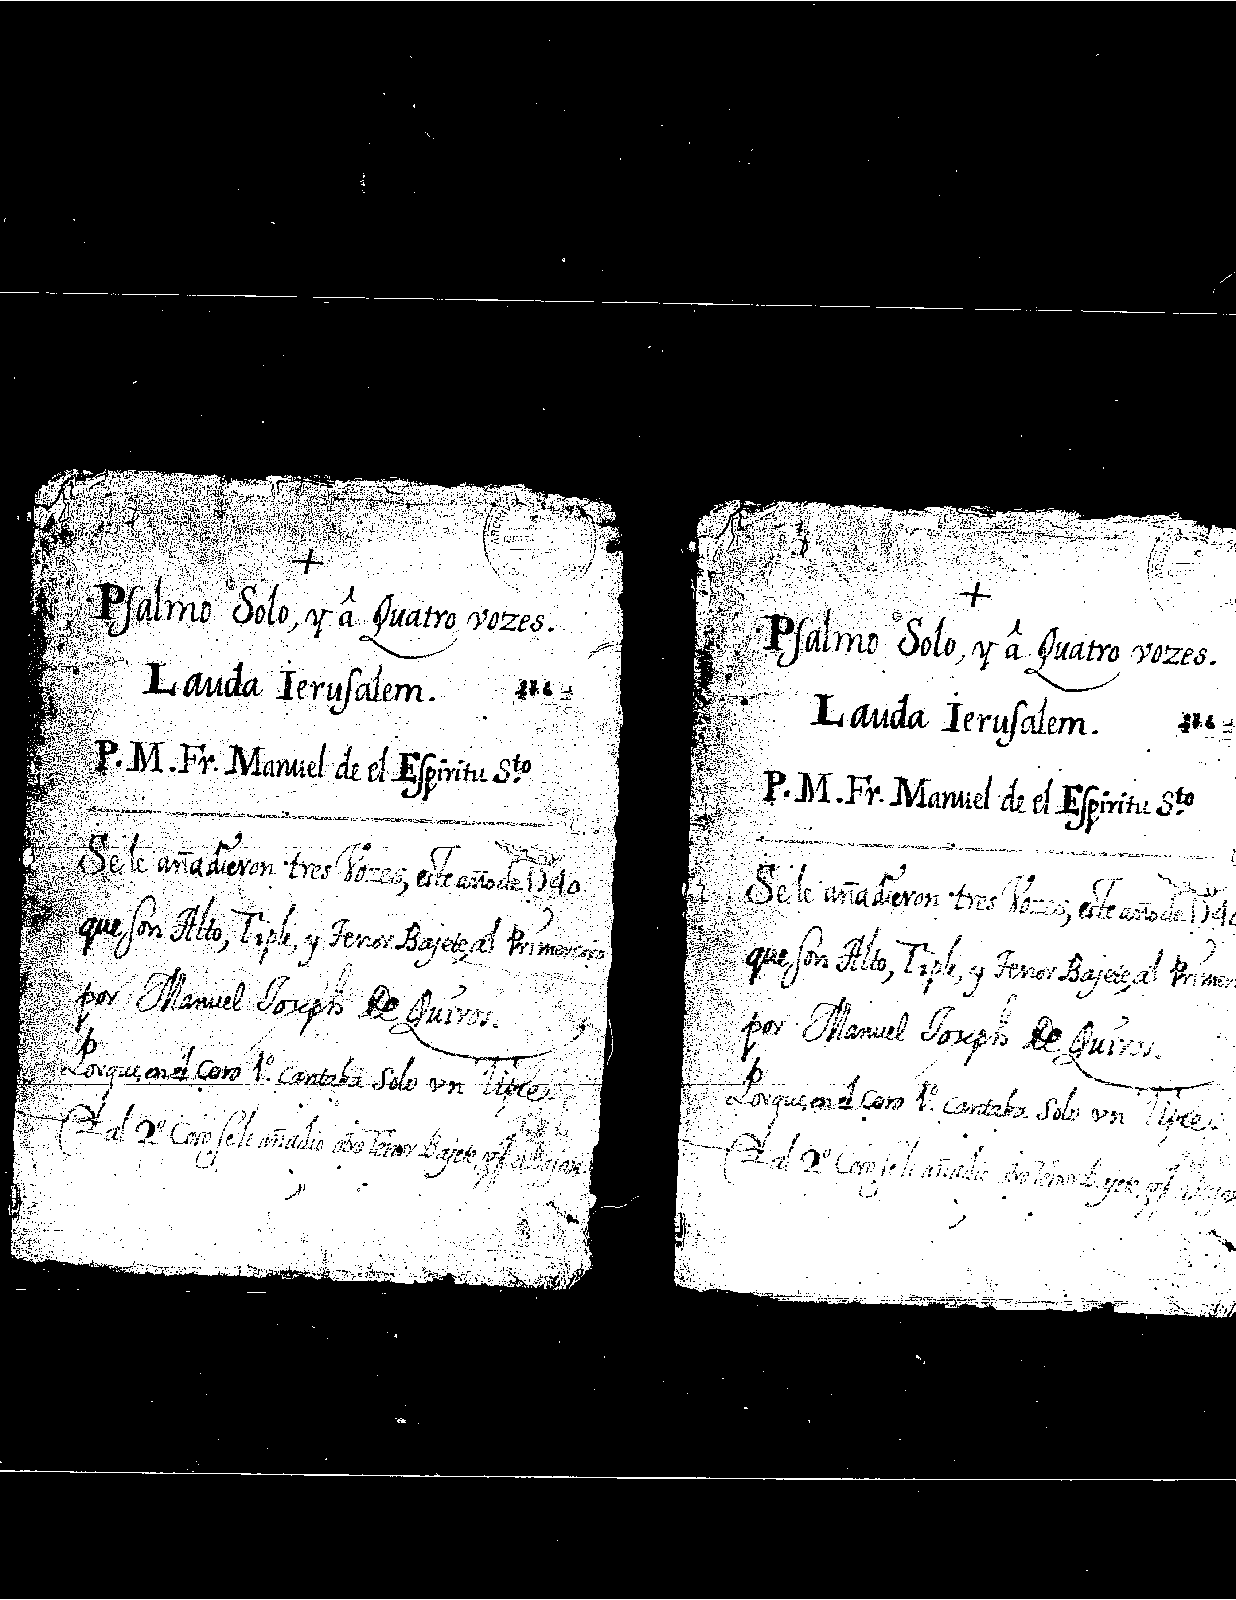 +
Psalmo Solo, y â Quatro vozes.
Lauda Ierusalem.
P. M. Fr. Manuel de el Espiritu Sto
Se le añadieron tres Vozes, este año de 1740
que son Alto, Tiple, y Tenor Bajete, al Primer coro
por Manuel Joseph De Quiros.
Porque, en el Coro 1º. cantaba Solo vn Tiple.
al 2º Coro se le añadio otro Tenor Bajete,
+
Psalmo Solo, y â Quatro vozes.
Lauda Ierusalem.
P. M. Fr. Manuel de el Espiritu Sto
Se le añadieron tres Vozes, este año de 174
que son Alto, Tiple, y Tenor Bajete, al Primer
por Manuel Joseph De Quiros.
Porque, en el Coro 1º. cantaba Solo vn Tiple.
al 2º Coro se le añadio otro Tenor Bajete,